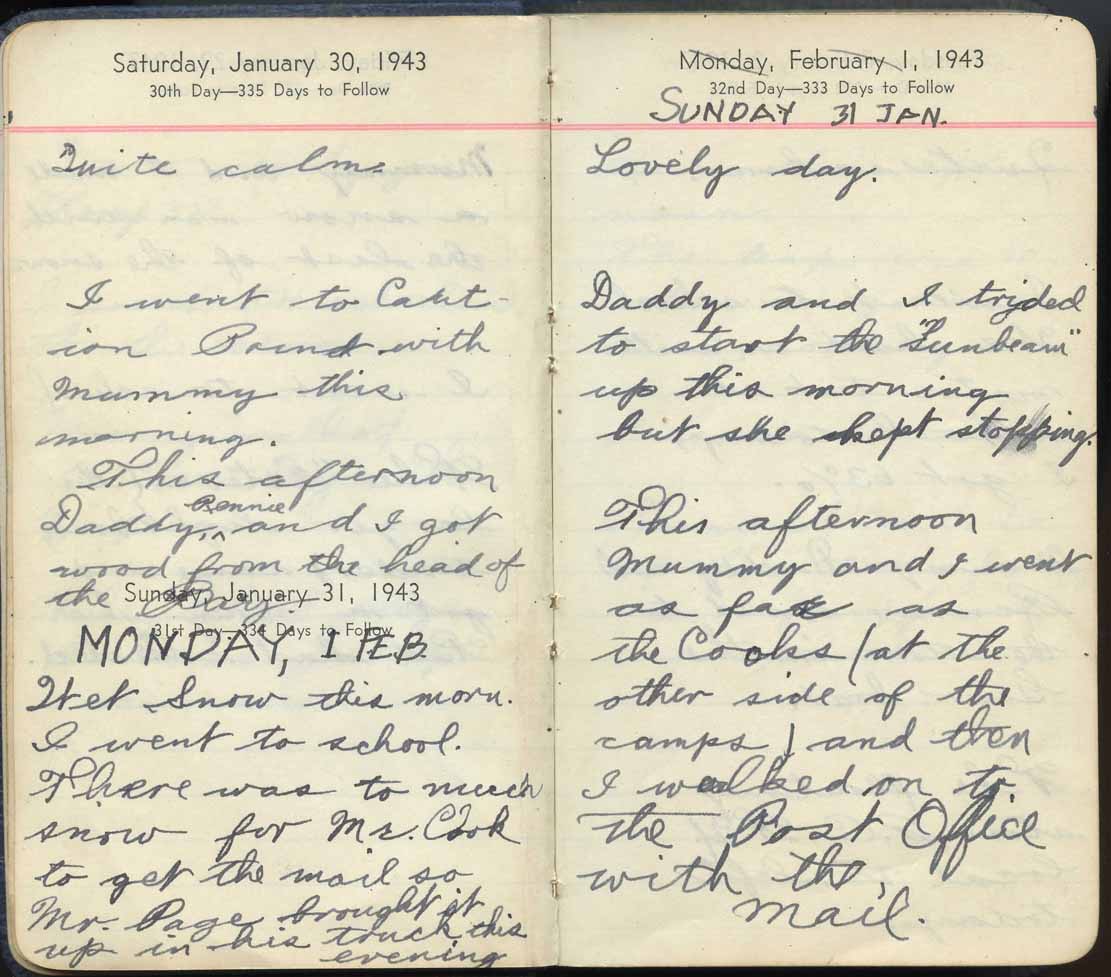 Saturday, January 30, 1943
30th Day—335 Days to Follow
Quite calm.
I went to Cakt-
ion Pound with
Mummy this
morning.
This afternoon
Rennie
Daddy, ^ and I got
wood from the head of
the Bay.
Sunday, January 31, 1943
31st Day—334 Days to Follow
MONDAY, 1 FEB.
Wet Snow this morn.
I went to school.
There was to much
snow for Mr. Cook
to get the mail so
Mr. Page brought it
up in his truck this
evening
Monday, February 1, 1943
32nd Day—333 Days to Follow
SUNDAY 31 JAN.
Lovely day.
Daddy and I tryded
to start the "Sunbeam"
up this morning
but she kept stopping.
This afternoon
Mummy and I went
as far as
the Cooks (at the
other side of the
camps) and then
I walked on to
the Post Office
with the
mail.